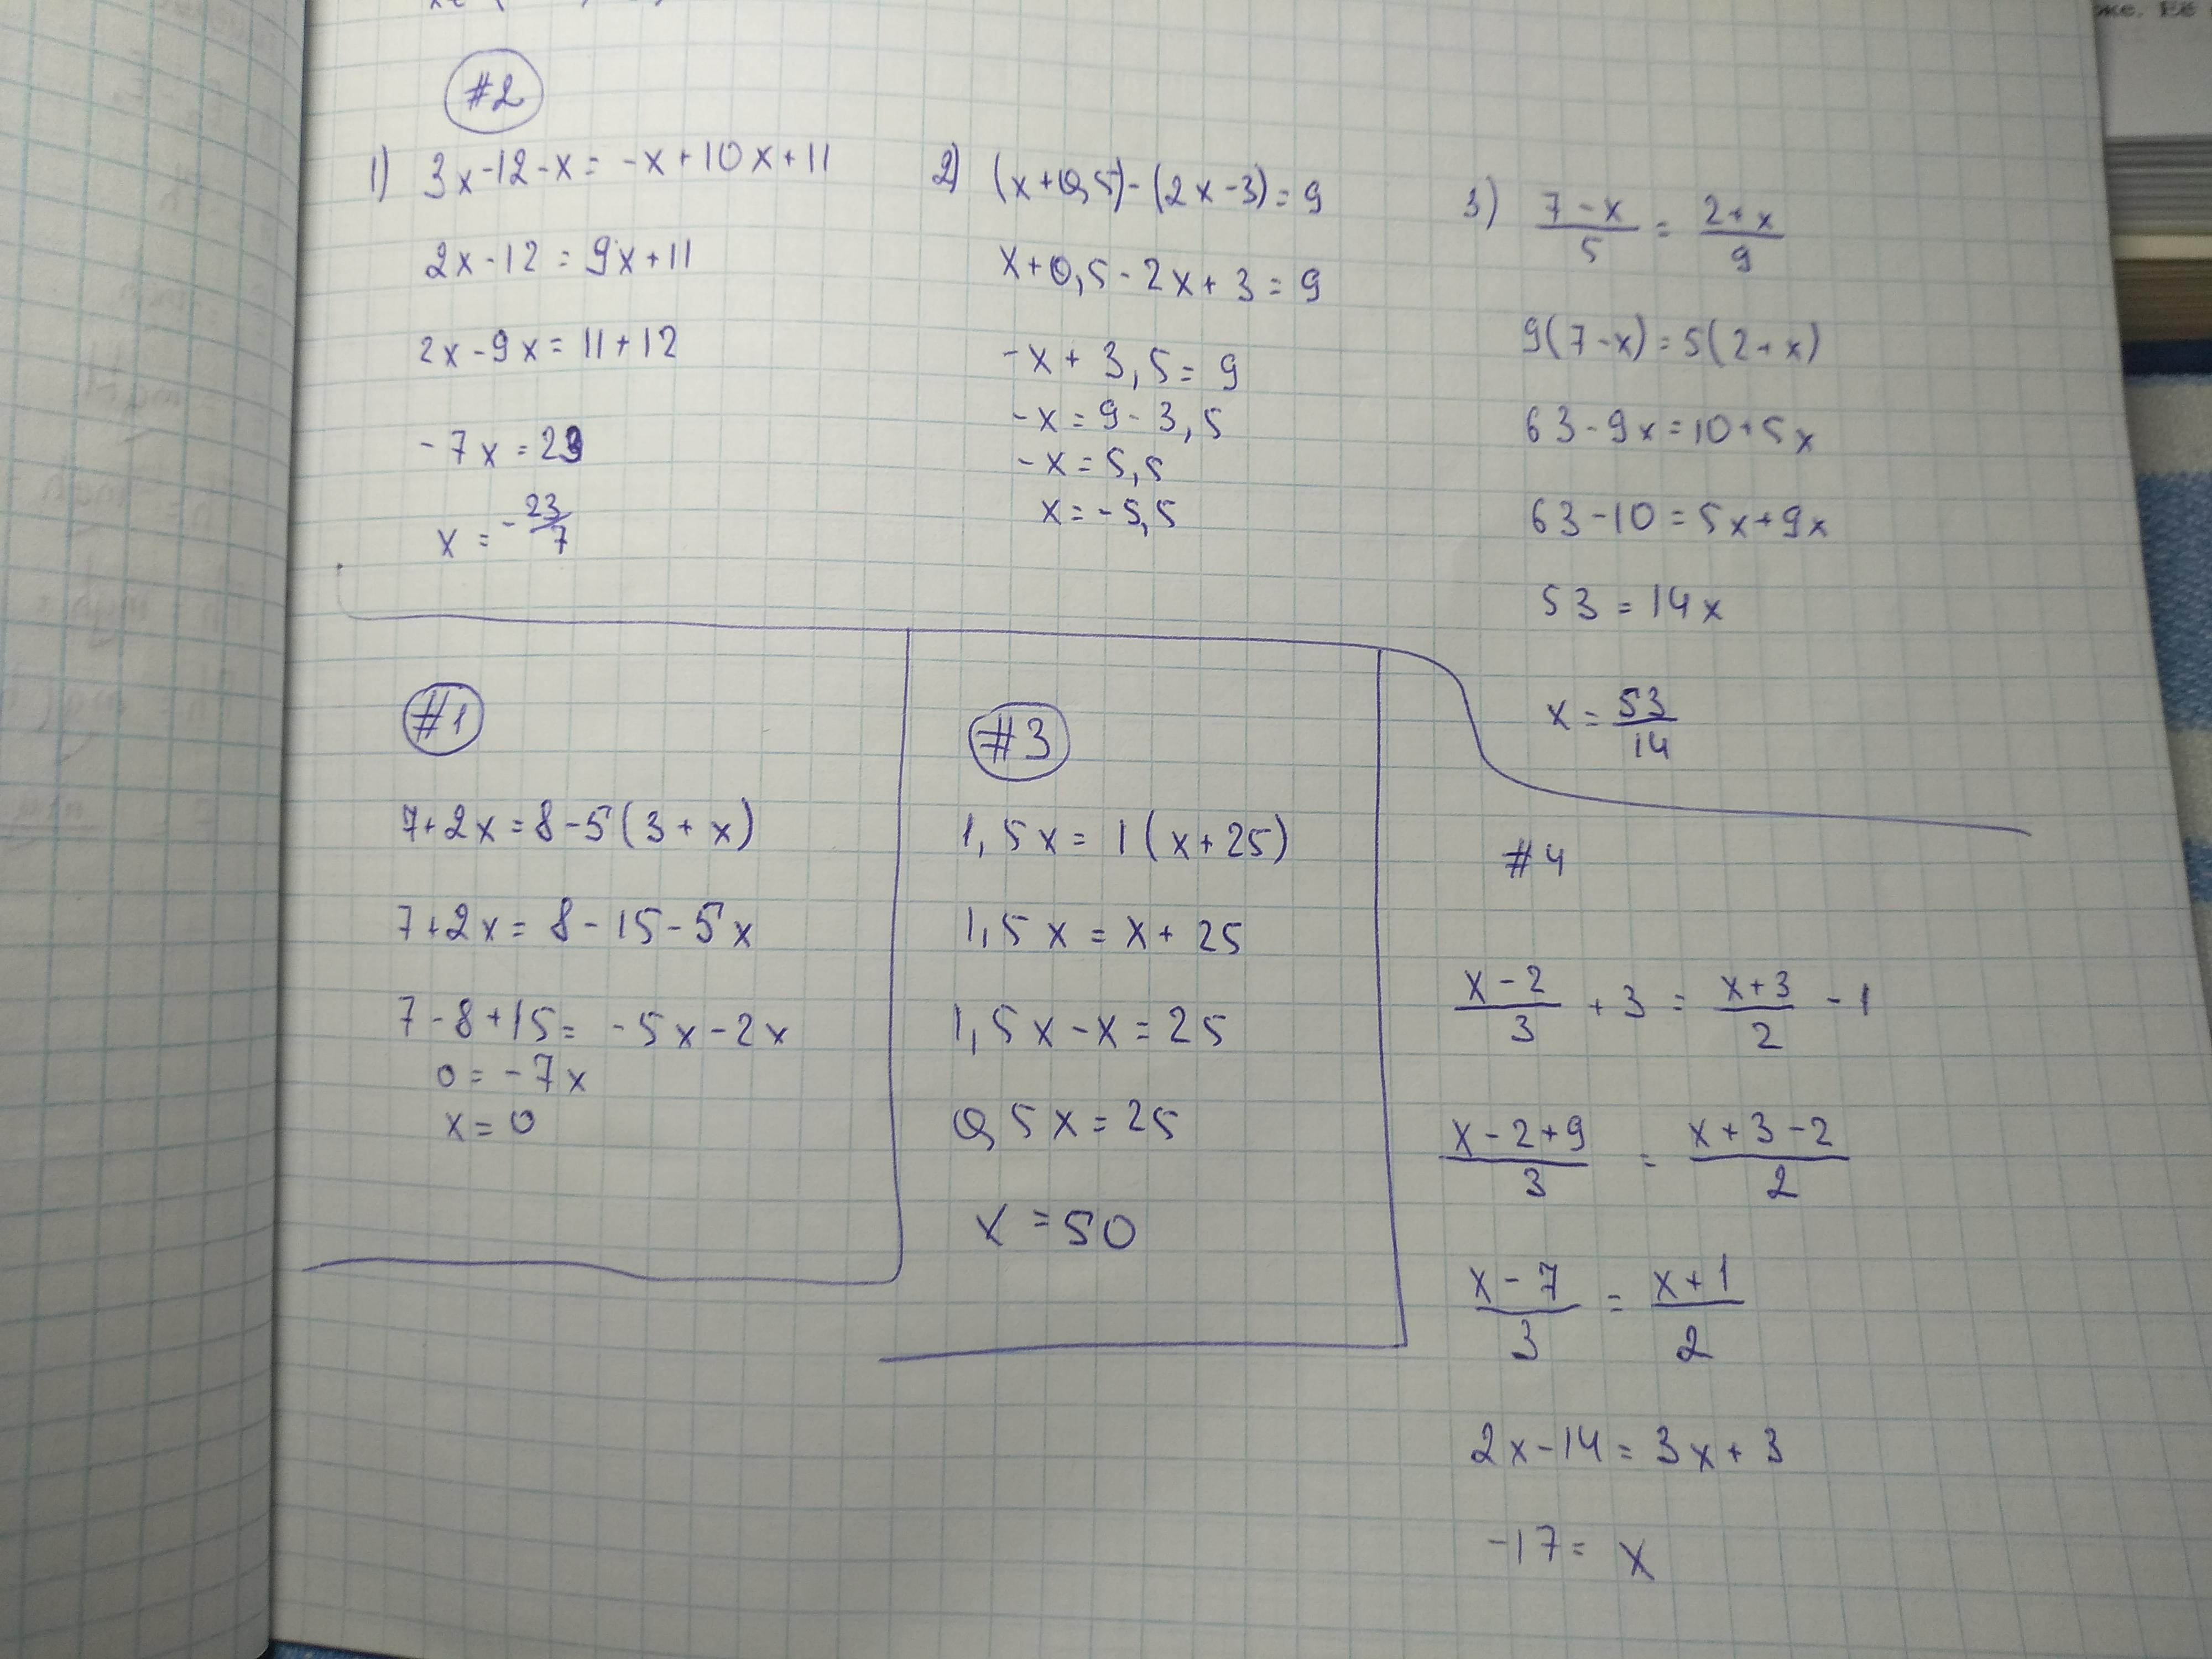 же. Её
#2
1) 3x-12-x = -x+10x+11
2x-12 = 9x+11
2x-9x = 11+12
-7x = 23
x = -23/7
2) (x+0,5)-(2x-3) = 9
x+0,5-2x+3 = 9
-x+3,5 = 9
-x = 9-3,5
-x = 5,5
x = -5,5
3) (7-x)/5 = (2+x)/9
9(7-x) = 5(2+x)
63-9x = 10+5x
63-10 = 5x+9x
53 = 14x
x = 53/14
#1
7+2x = 8-5(3+x)
7+2x = 8-15-5x
7-8+15 = -5x-2x
0 = -7x
x = 0
#3
1,5x = 1(x+25)
1,5x = x+25
1,5x-x = 25
0,5x = 25
x = 50
#4
(x-2)/3 + 3 = (x+3)/2 - 1
(x-2+9)/3 = (x+3-2)/2
(x-7)/3 = (x+1)/2
2x-14 = 3x+3
-17 = x